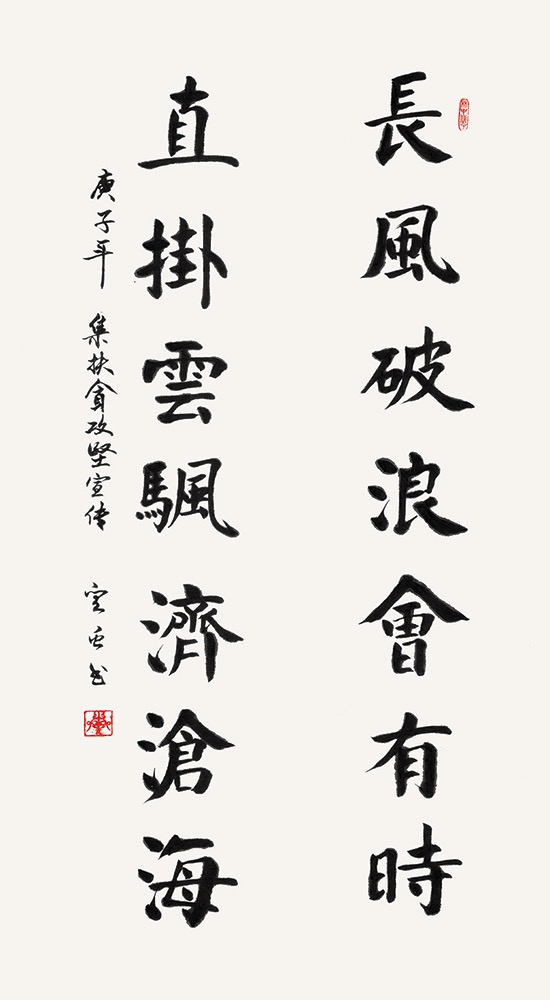 長風破浪會有時
直掛雲颿濟滄海
庚子年 集扶貧攻堅宣传
书